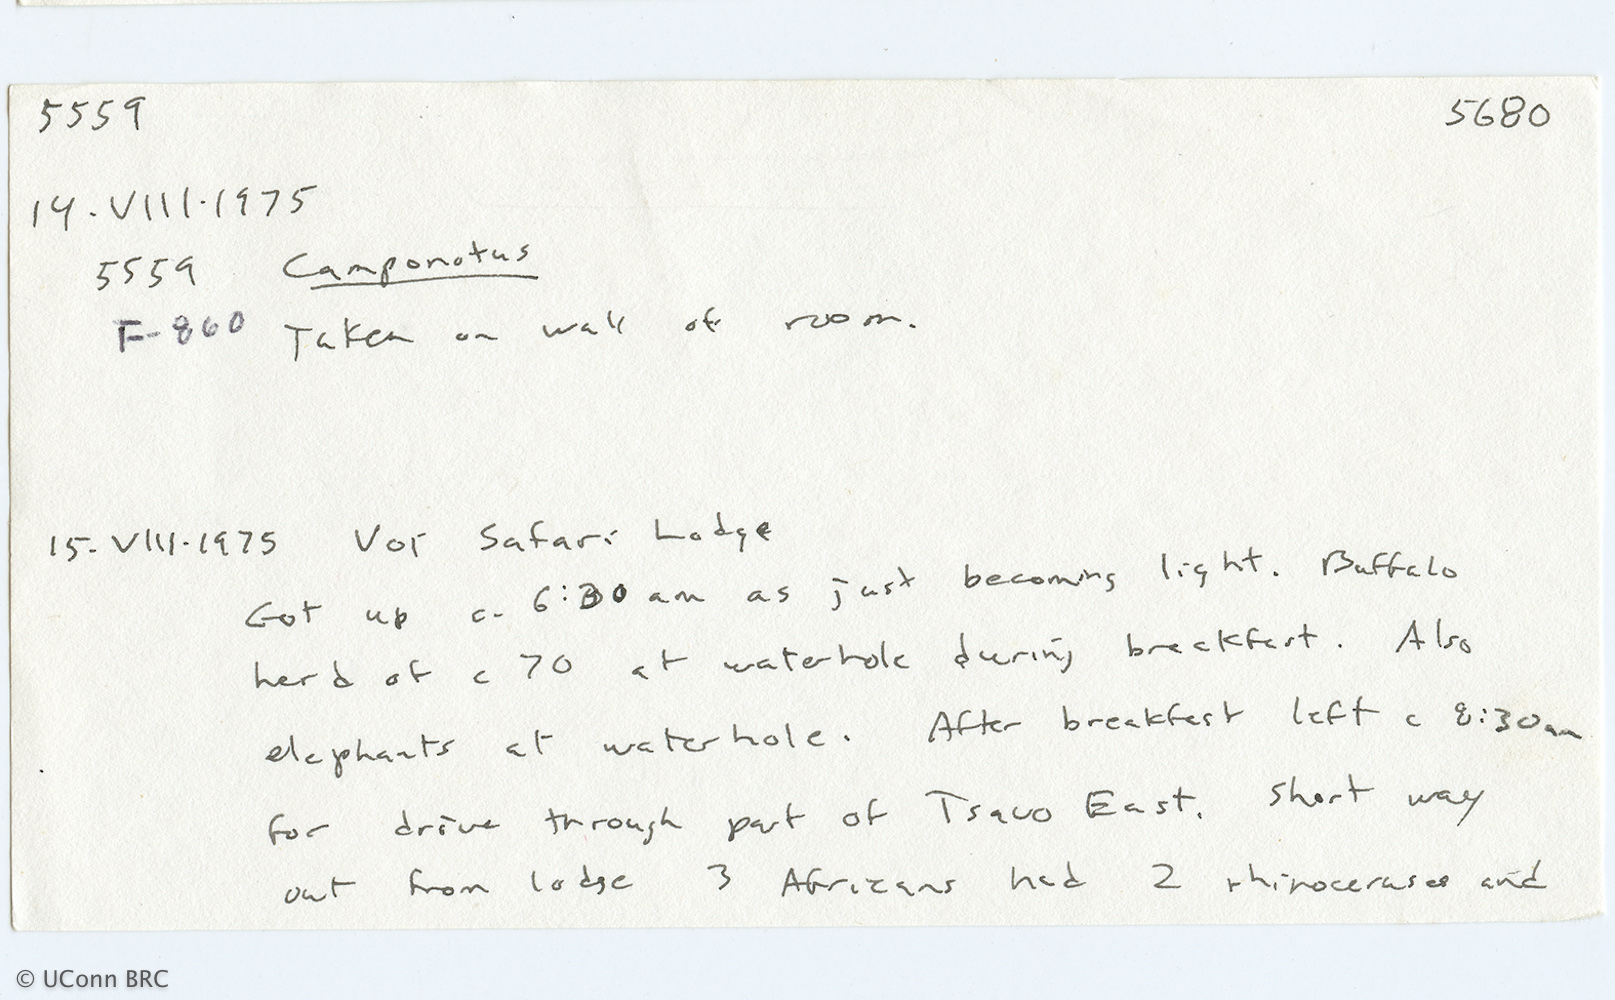 5559 5680
14.VIII.1975
5559 Camponotus
F-860 Taken on wall of room.
15.VIII.1975 Voi Safari Lodge
Got up c. 6:30 am as just becoming light. Buffalo
herd of c 70 at waterhole during breakfast. Also
elephants at waterhole. After breakfast left c 8:30am
for drive through part of Tsavo East. Short way
out from lodge 3 Africans had 2 rhinoceroses and
© UConn BRC